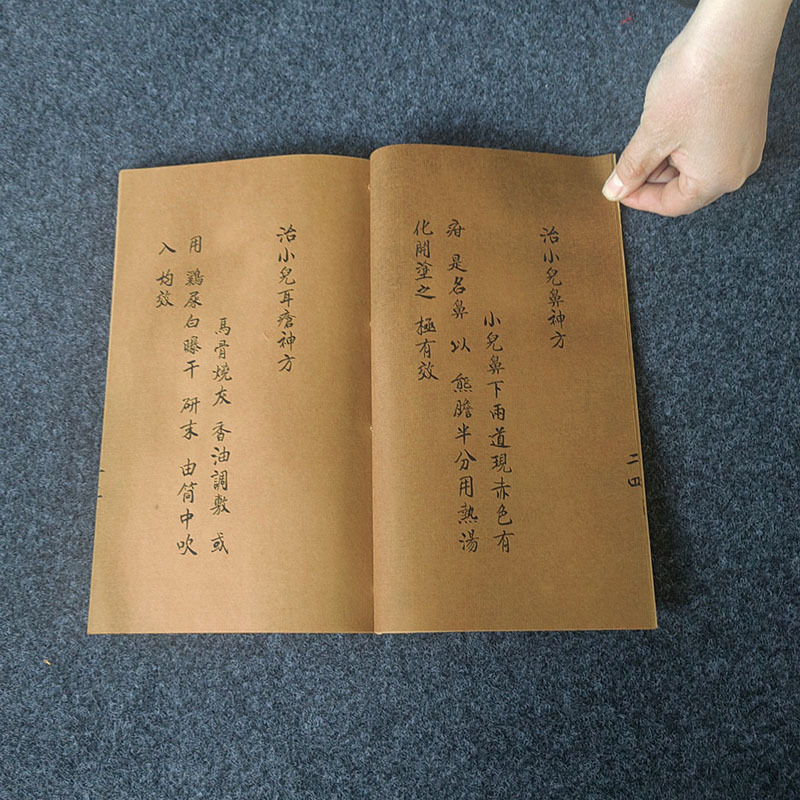 二四
治小兒鼻神方
小兒鼻下雨道現赤色有
疳 是名鼻 以 熊膽半分用熱湯
化開塗之 極有效
治小兒耳瘡神方
馬骨燒灰 香油調敷 或
用 鷄屎白曝干 研末 由筒中吹
入 均效